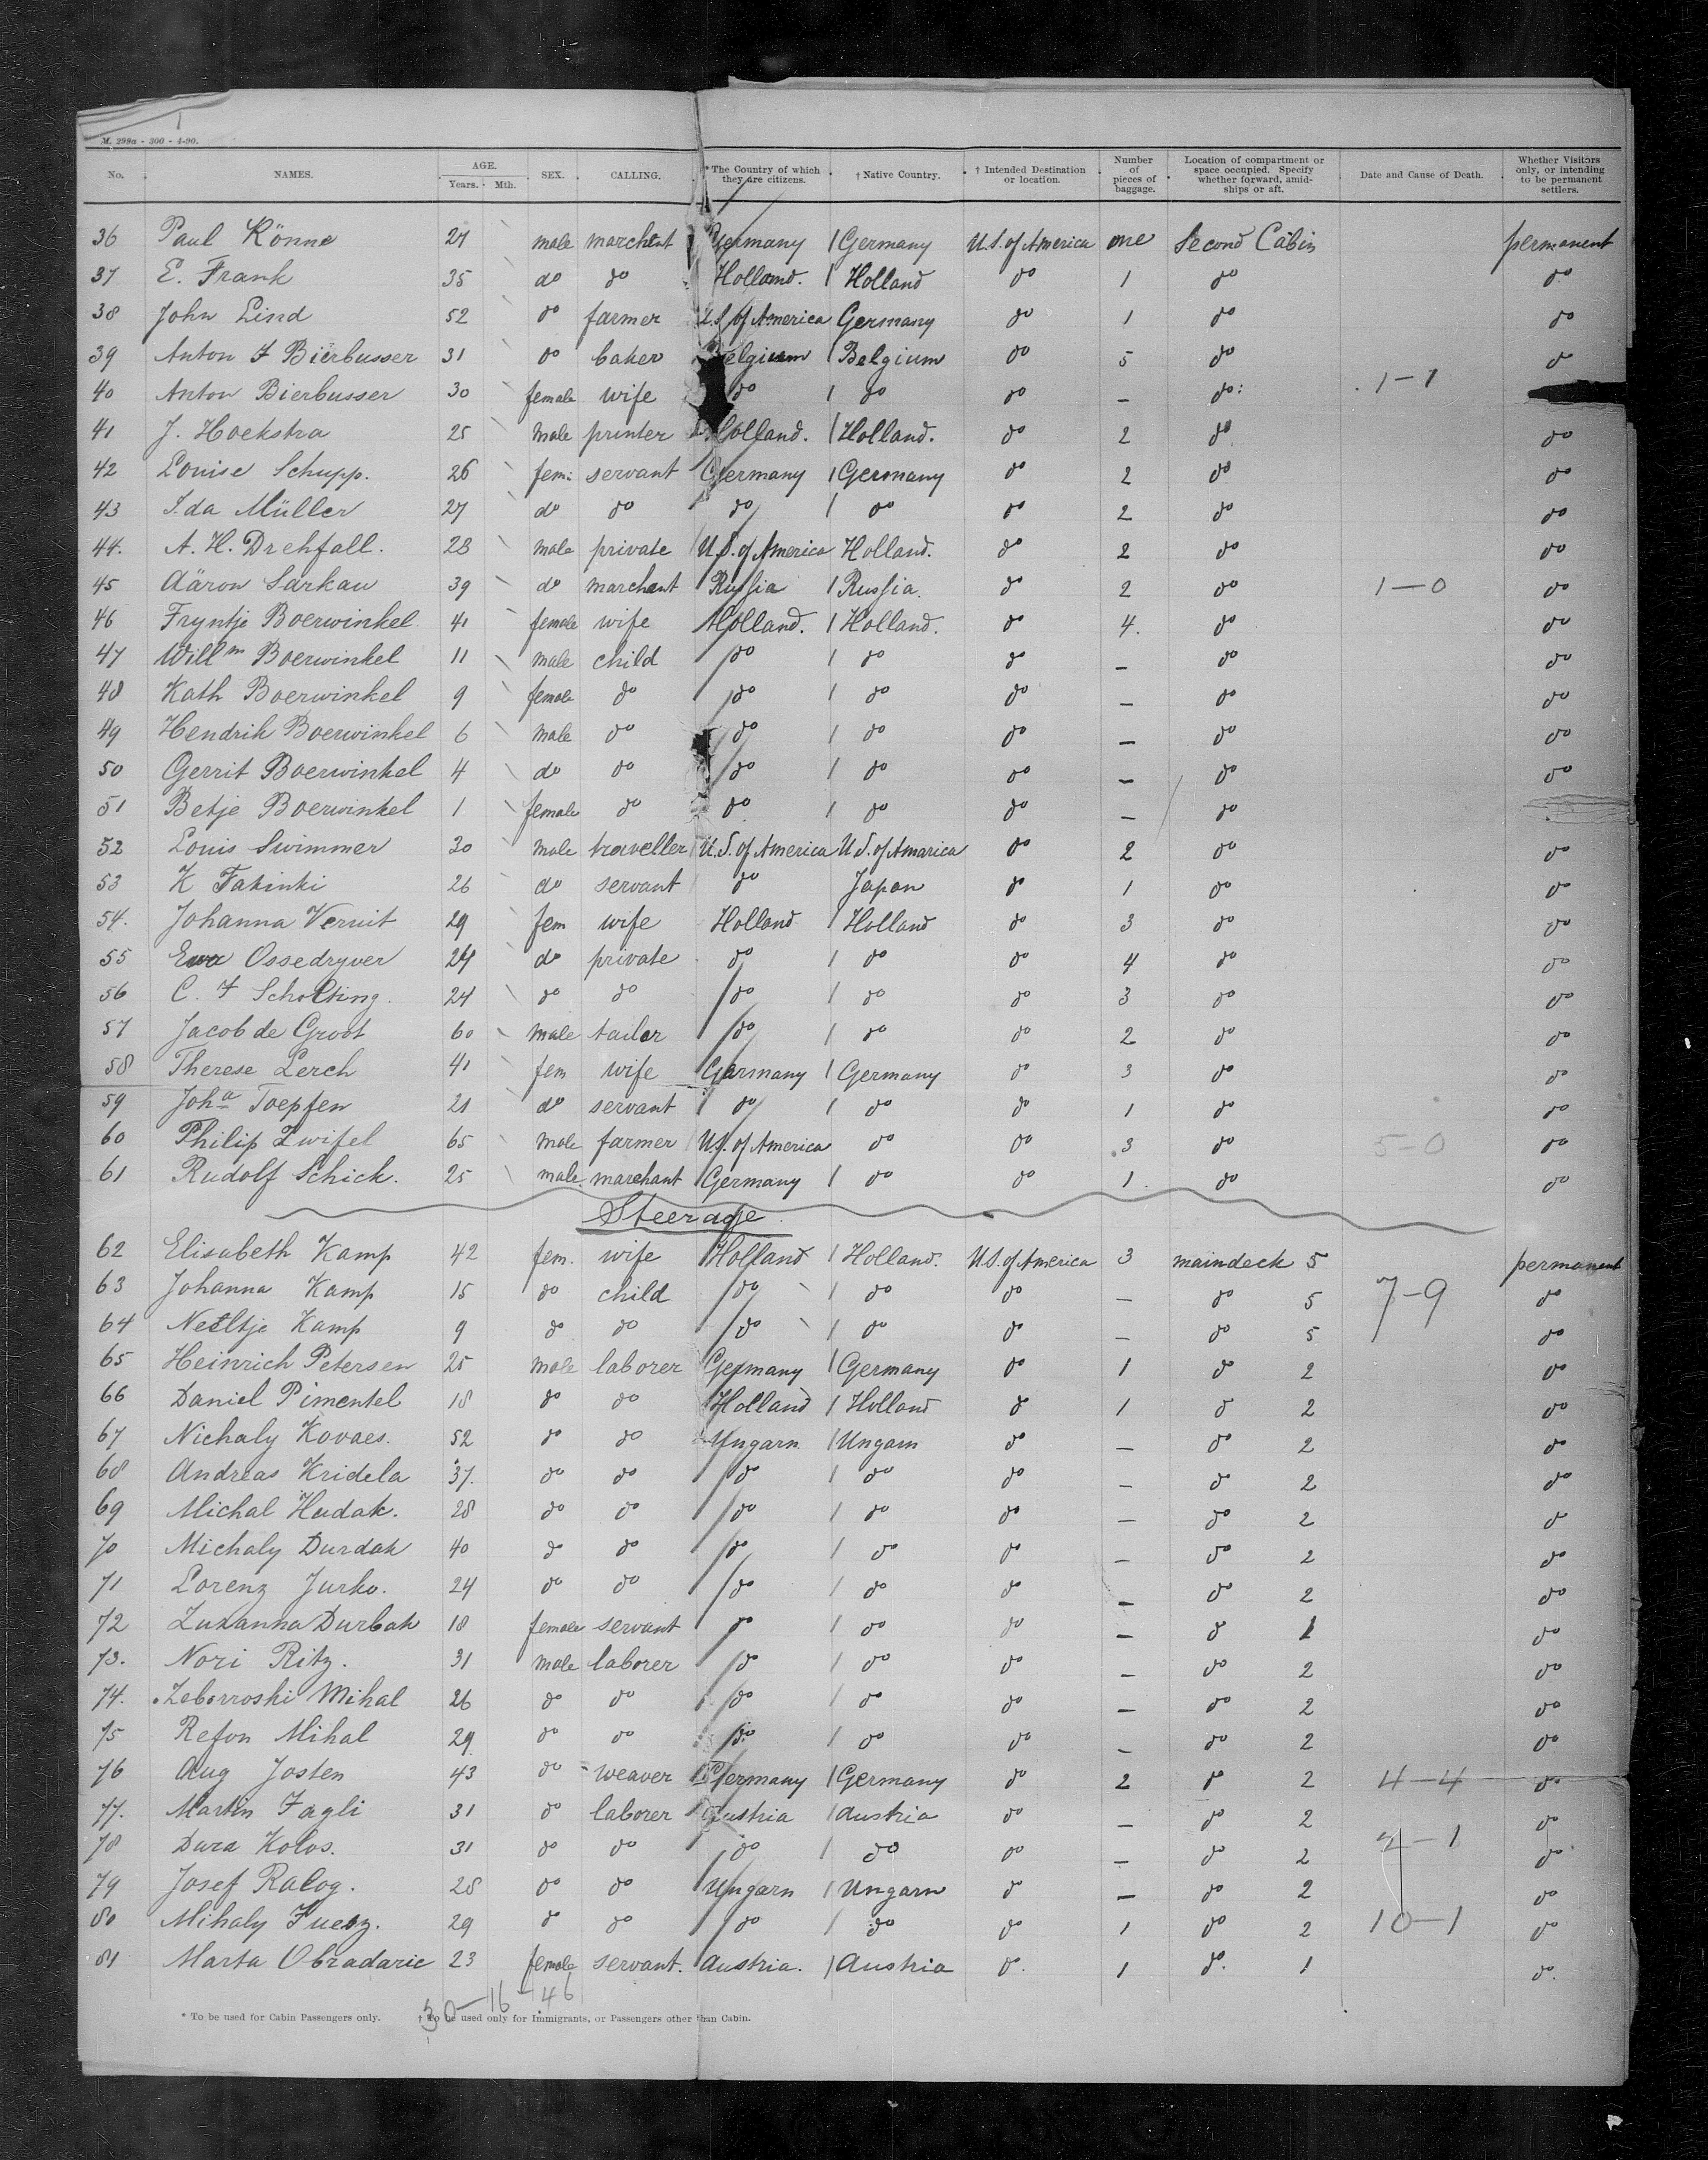 M. 299a - 300 - 4-90.
No. NAMES. AGE. Years. Mth. SEX. CALLING. * The Country of which they are citizens. † Native Country. † Intended Destination or location. Number of pieces of baggage. Location of compartment or space occupied. Specify whether forward, amidships or aft. Date and Cause of Death. Whether Visitors only, or intending to be permanent settlers.
36 Paul Rönne 27 male marchent Germany / Germany U.S. of America one Second Cabin permanent
37 E. Frank 35 do do Holland. / Holland do 1 do do
38 John Lind 52 do farmer U.S. of America Germany do 1 do do
39 Anton F Bierbusser 31 do baker Belgium / Belgium do 5 do do
40 Anton Bierbusser 30 female wife do / do do — do: 1-1
41 J. Hoekstra 25 male printer Holland. / Holland. do 2 do do
42 Louise Schupp. 26 fem: servant Germany / Germany do 2 do do
43 Ida Müller 27 do do do / do do 2 do do
44. A. H. Drehfall. 28 male private U.S. of America Holland. do 2 do do
45 Aäron Sarkau 39 do marchant Russia / Russia. do 2 do 1-0 do
46 Fryntje Boerwinkel 41 female wife Holland. / Holland. do 4. do do
47 Willm Boerwinkel 11 male child do / do do — do do
48 Kath Boerwinkel 9 female do do / do do — do do
49 Hendrik Boerwinkel 6 male do do / do do — do do
50 Gerrit Boerwinkel 4 do do do / do do — do do
51 Betje Boerwinkel 1 female do do / do do — do
52 Louis Swimmer 30 male traveller U.S. of America U.S. of Amarica do 2 do do
53 K Takinki 26 do servant do Japan do 1 do do
54. Johanna Veruit 29 fem wife Holland / Holland do 3 do do
55 Eva Ossedryver 24 do private do / do do 4 do do
56 C. F Scholting. 24 do do do / do do 3 do do
57 Jacob de Groot 60 male tailor do / do do 2 do do
58 Therese Lerch 41 fem wife Garmany / Germany do 3 do do
59 Joha Toepfen 21 do servant do / do do 1 do do
60 Philip Zwifel 65 male farmer U.S. of America do do 3 do 5-0 do
61 Rudolf Schick. 25 male marchant Germany / do do 1. do do
Steerage
62 Elisabeth Kamp 42 fem. wife Holland / Holland. U.S. of America 3 maindeck 5 permanent
63 Johanna Kamp 15 do child do / do do — do 5 7-9 do
64 Neeltje Kamp 9 do do do / do do — do 5 do
65 Heinrich Petersen 25 male laborer Germany / Germany do 1 do 2 do
66 Daniel Pimentel 18 do do Holland / Holland do 1 do 2 do
67 Nichaly Kovaes. 52 do do Ungarn / Ungarn do — do 2 do
68 Andreas Kridela 37. do do do / do do — do 2 do
69 Michal Hudak. 28 do do do / do do — do 2 do
70 Michaly Durdak 40 do do do / do do — do 2 do
71 Lorenz Jurko. 24 do do do / do do — do 2 do
72 Zuzanna Durbak 18 female servant do / do do — do 1 do
73. Nori Ritz. 31 male laborer do / do do — do 2 do
74. Zeborroshi Mihal 26 do do do / do do — do 2 do
75 Refon Mihal 29 do do do / do do — do 2 do
76 Aug Josten 43 do weaver Germany / Germany do 2 do 2 4-4 do
77. Martin Fagli 31 do laborer Austria / Austria do — do 2 do
78 Dura Kolos. 31 do do do / do do — do 2 2-1 do
79 Josef Ralog. 28 do do Ungarn / Ungarn do — do 2 do
80 Mihaly Fuesz. 29 do do do / do do 1 do 2 10-1 do
81 Marta Obradaric 23 female servant. Austria. / Austria do. 1 do. 1 do.
30-16 46
* To be used for Cabin Passengers only. † To be used only for Immigrants, or Passengers other than Cabin.